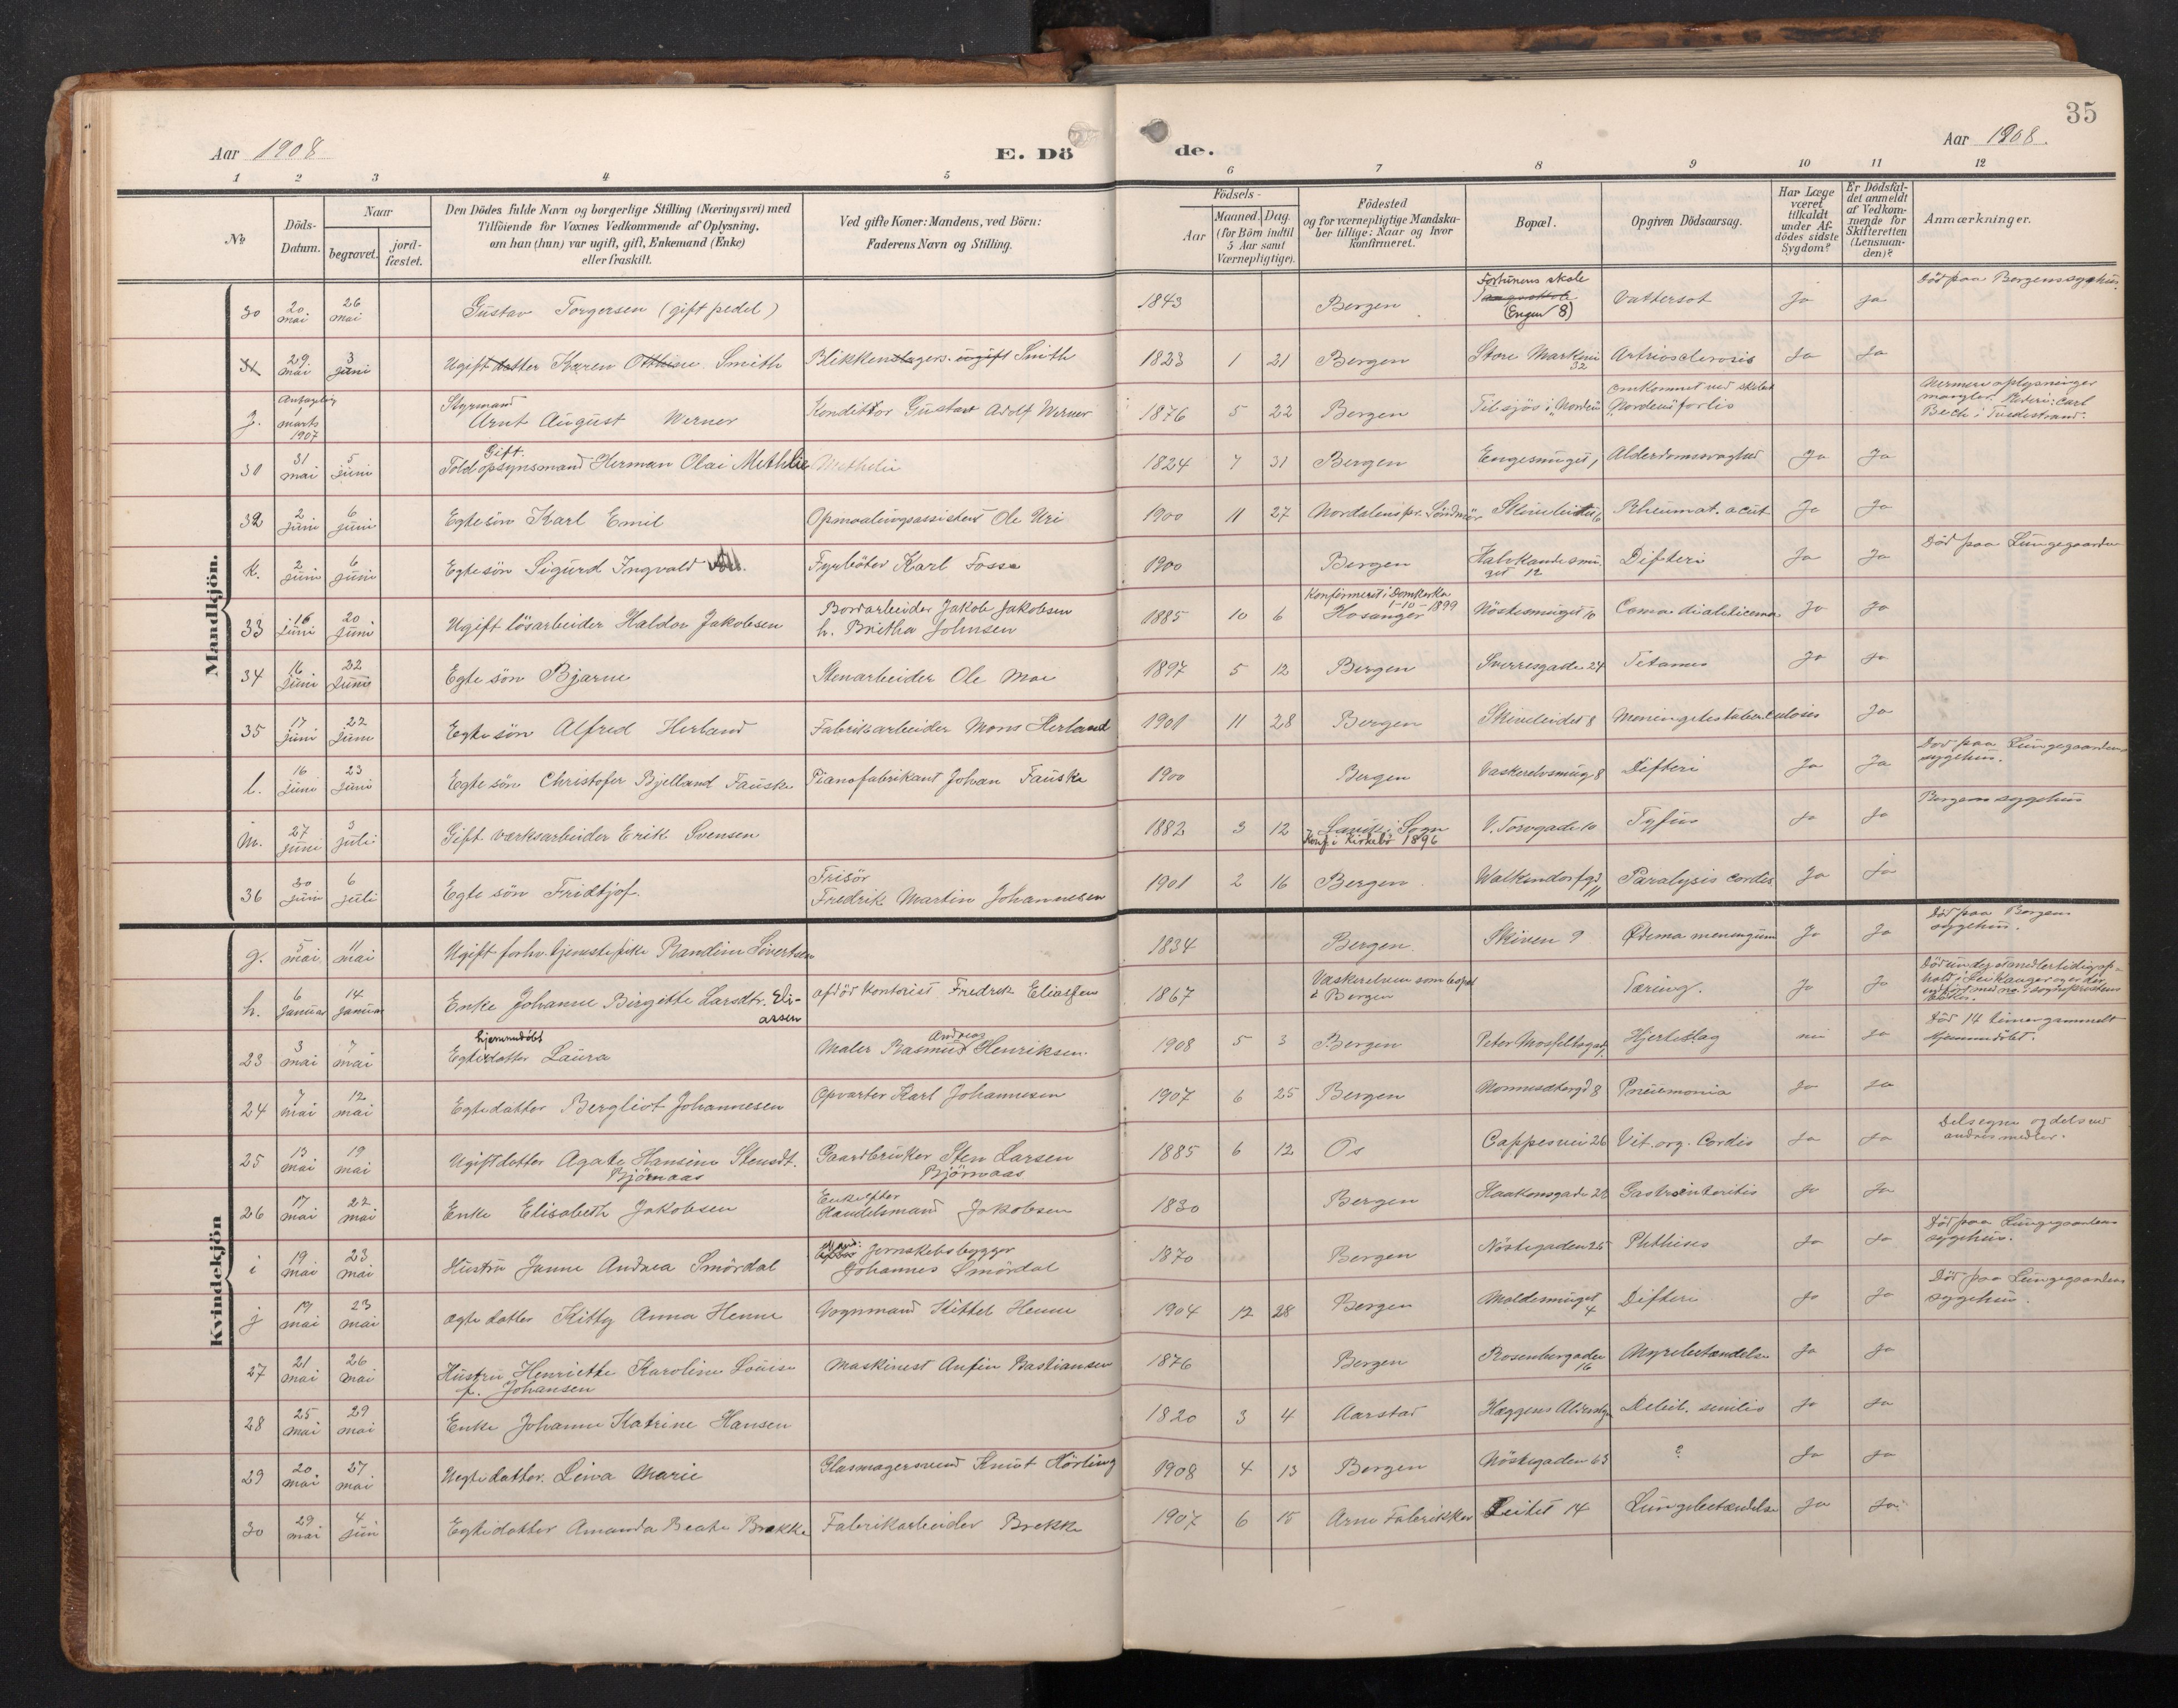 35
Aar 1908
E. Dö
de.
Aar 1908.
1 2 3 4 5 6 7 8 9 10 11 12
No
Döds-Datum.
Naar begravet. jord-fæstet.
Den Dödes fulde Navn og borgerlige Stilling (Næringsvei) med Tilföiende for Voxnes Vedkommende af Oplysning, om han (hun) var ugift, gift, Enkemand (Enke) eller fraskilt.
Ved gifte Koner: Mandens, ved Börn: Faderens Navn og Stilling.
Födsels-
Aar
Maaned. Dag. (for Börn indtil 5 Aar samt Værnepligtige).
Födested og for værnepligtige Mandskaber tillige: Naar og hvor Konfirmeret.
Bopæl.
Opgiven Dödsaarsag.
Har Læge været tilkaldt under Afdödes sidste Sygdom?
Er Dödsfaldet anmeldt af Vedkommende for Skifteretten (Lensmanden)?
Anmærkninger.
Mandkjön.
30 20 mai 26 mai Gustav Torgersen (gift pedel) 1843 Bergen Fortunens skole (Engen 8) Vattersot Ja Ja Död paa Bergens sygehus.
31 29 mai 3 juni Ugift datter Karen Othine Smith Blikkenslagers ugift Smith 1823 1 21 Bergen Store Markevei 32 Artriosclerosis Ja Ja
J. Antagelig 1 marts 1907 Styrmand Arnt August Werner Konditor Gustav Adolf Werner 1876 5 22 Bergen Tilsjös i "Norden" omkommet ved skibet "Nordens" forlis Nærmere oplysninger mangler. Rederi: Carl Bech i Tvedestrand.
31 31 mai 5 juni Gift. Toldopsynsmand Herman Olai Methlie Methlie 1824 7 31 Bergen Engesmuget 1 Alderdomssvaghed Ja Ja
32 2 juni 6 juni Egte sön Karl Emil Opmaalingsassistent Ole Uri 1900 11 27 Nordalens pr. Söndmör Skiveleitet 6 Rheumat. acut Ja Ja
k. 2 juni 6 juni Egte sön Sigurd Ingvald Fyrböter Karl Fosse 1900 Bergen Halvkandesmuget 12 Difteri Ja Ja Död paa Lungegaarden
33 16 juni 20 juni Ugift lösarbeider Haldor Jakobsen Bordarbeider Jakob Jakobsen h. Britha Johnsen 1885 10 6 Konfirmeret i Domkirka 1-10-1899 Hosanger Nöstesmuget 10 Coma diabeticema Ja Ja
34 16 juni 22 juni Egte sön Bjarne Stenarbeider Ole Moe 1897 5 12 Bergen Sverresgade 24 Tetanus Ja Ja
35 17 juni 22 juni Egte sön Alfred Herland Fabrikarbeider Mons Herland 1901 11 28 Bergen Skiveleidet 8 Meningitis tuberculosis Ja
l. 16 juni 23 juni Egte sön Christofer Bjelland Fauske Pianofabrikant Johan Fauske 1900 Bergen Vaskerelvsmug. 8 Difteri Ja Ja Död paa Lungegaardens sygehus.
m. 27 juni 3 juli Gift værksarbeider Erik Svensen 1882 3 12 Lavik i Sogn Konf. i Kirkebö 1896 V. Torvgade 10 Tyfus Ja Ja Bergens sygehus
36 30 juni 6 juli Egte sön Fridtjof. Frisör Fredrik Martin Johannesen 1901 2 16 Bergen Walkendorfsgd. 11 Paralysis cordis Ja Ja
Kvindekjön
g. 5 mai 11 mai Ugift forhv. tjenestepike Randine Sivertsen 1834 Bergen. Skiven 9 Ødema meningum Ja Ja Död paa Bergens sygehus.
h. 6 januar 14 januar Enke Johanne Birgitte Larsdtr. Eliassen afdöd kontorist Fredrik Eliassen 1867 Vaskerelven som bopæl i Bergen Tæring. Ja Ja
23 3 mai 7 mai hjemmedöbt Egte datter Laura Maler Rasmus Andreas Henriksen. 1908 5 3 Bergen Peter Mosseltsgade Hjerteslag nei Ja Död 14 timer gammelt hjemmedöbt.
24 7 mai 12 mai Egte datter Bergliot Johannesen Opvarter Karl Johannesen 1907 6 25 Bergen Nonnesætergd 8 Pneumonia Ja Ja
25 13 mai 19 mai Ugift datter Agate Hansine Stensdt. Björnaas Gaardbruker Sten Larsen Björnaas 1885 6 12 Os Cappesvei 26 Vit. org. Cordis Ja Ja Dels egne og dels ved andres midler.
26 17 mai 22 mai Enke Elisabeth Jakobsen Enke efter Handelsmand Jakobsen 1830 Bergen Haakonsgade 28 Gastrointeritis Ja Ja
i 19 mai 23 mai Hustru Janne Andrea Smördal Mand: Jernskibsbygger Johannes Smördal 1870 Bergen Nöstegaden 25 Phthises Ja Ja Död paa Lungegaardens sygehus.
j 19 mai 23 mai Egte datter Kitty Anna Henne Vognmand Kittel Henne 1904 12 28 Bergen Moldesmuget 4 Difteri Ja Ja Död paa Lungegaardens sygehus.
27 21 mai 26 mai Hustru Henriette Karoline Louise f. Johansen Maskinest Anfin Bastiansen 1876 Bergen Rosenbergaden 16 Nyrebetændelse Ja Ja
28 25 mai 29 mai Enke Johanne Katrine Hansen 1820 3 4 Aarstad Hæggens Alderstge Debil. senilis Ja Ja
29 20 mai 27 mai Uegte datter. Liva Marie Glasmagersvend Knut Hörting 1908 4 13 Bergen Nöstegaden 63 ? Ja Ja
30 29 mai 4 jun Egte datter Amanda Beate Brekke Fabrikarbeider Brekke 1907 6 15 Arne Fabrikker Leitet 14 Lungebetændelse Ja Ja